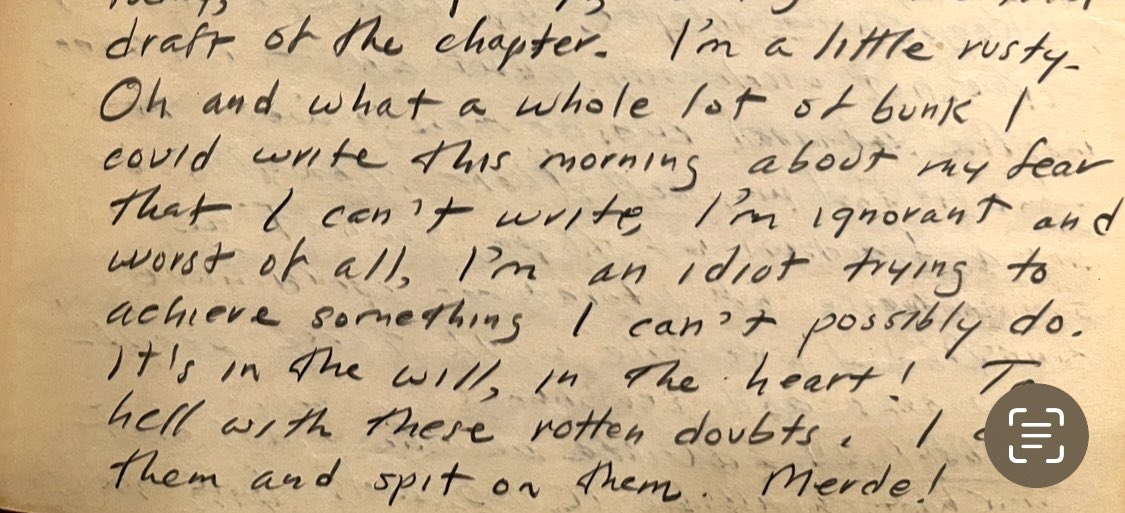 draft of the chapter. I'm a little rusty.
Oh and what a whole lot of bunk I
could write this morning about my fear
that I can't write, I'm ignorant and
worst of all, I'm an idiot trying to
achieve something I can't possibly do.
It's in the will, in the heart! To
hell with these rotten doubts. I
them and spit on them. Merde!